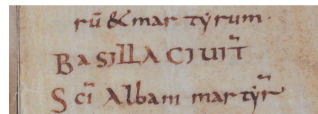 rū & mar tyrum.
Basilla ciuit̄
Sci̅ Albani martyr̄